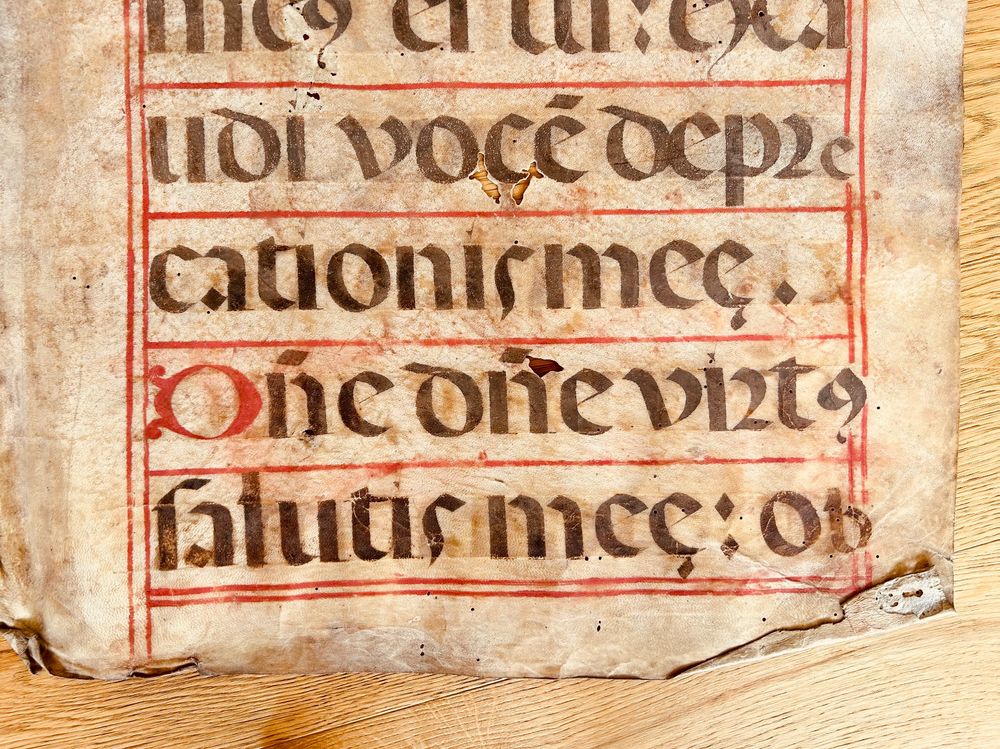 meꝰ es tu: exa
udi vocē depꝛe
cationis meę.
Dn̄e dn̄e virtꝰ
salutis meę: ob